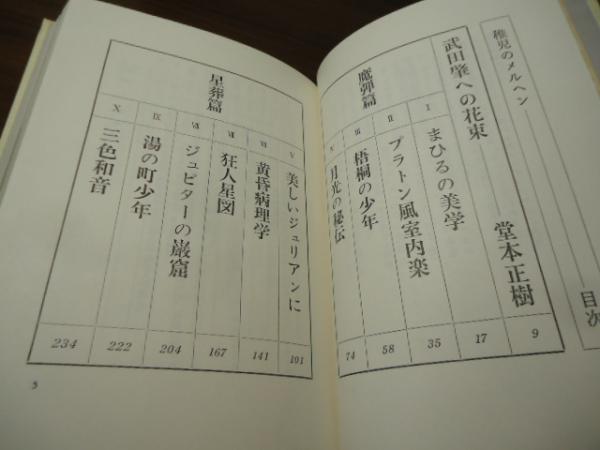 稚児のメルヘン 目次
武田肇への花束 堂本正樹 9
魔弾篇
Ⅰ まひるの美学 17
Ⅱ プラトン風室内楽 35
Ⅲ 梧桐の少年 58
月光の秘伝 74
星葬篇
Ⅴ 美しいジュリアンに 101
Ⅵ 黄昏病理学 141
Ⅶ 狂人星図 167
Ⅷ ジュピターの巌窟 204
Ⅸ 湯の町少年 222
Ⅹ 三色和音 234
5